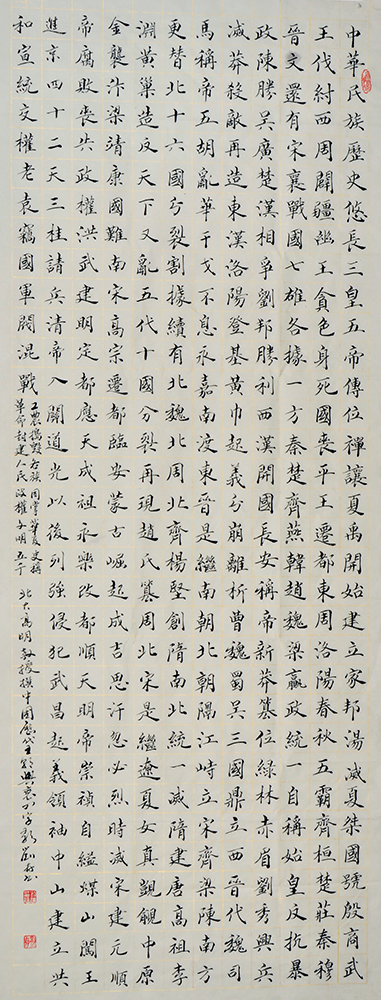 中華民族歷史悠長三皇五帝傳位禪讓夏禹開始建立家邦湯滅夏桀國號殷商武
王伐紂西周闢疆幽王貪色身死國喪平王遷都東周洛陽春秋五霸齊桓楚莊秦穆
晉文還有宋襄戰國七雄各據一方秦齊燕韓趙魏梁嬴政統一自稱始皇反抗暴
政陳勝吳廣楚漢相爭劉邦勝利西漢開國長安稱帝新莽篡位綠林赤眉劉秀興兵
滅莽殺敵再造東漢洛陽登基黃巾起義分崩離析曹魏蜀吳三國鼎立西晉代魏司
馬稱帝五胡亂華干戈不息永嘉南渡東晉是繼南朝北朝隔江峙立宋齊梁陳南方
更替北十六國分裂割據續有北魏北周北齊楊堅創隋南北統一滅隋建唐高祖李
淵黃巢造反天下又亂五代十國分裂再現趙氏篡周北宋是繼遼夏女真覬覦中原
金襲汴梁靖康國難南宋高宗遷都臨安蒙古崛起成吉思汗忽必烈時滅宋建元順
帝腐敗喪失政權洪武建明定都應天成祖永樂改都順天明帝崇禎自縊煤山闖王
進京四十二天三桂請兵清帝入關道光以後列強侵犯武昌起義領袖中山建立共
和宣統交權老袁竊國軍閥混戰
各族同掌華夏史
革命封建人民政權文明五千
北大高明教授撰中國歷代王朝興衰